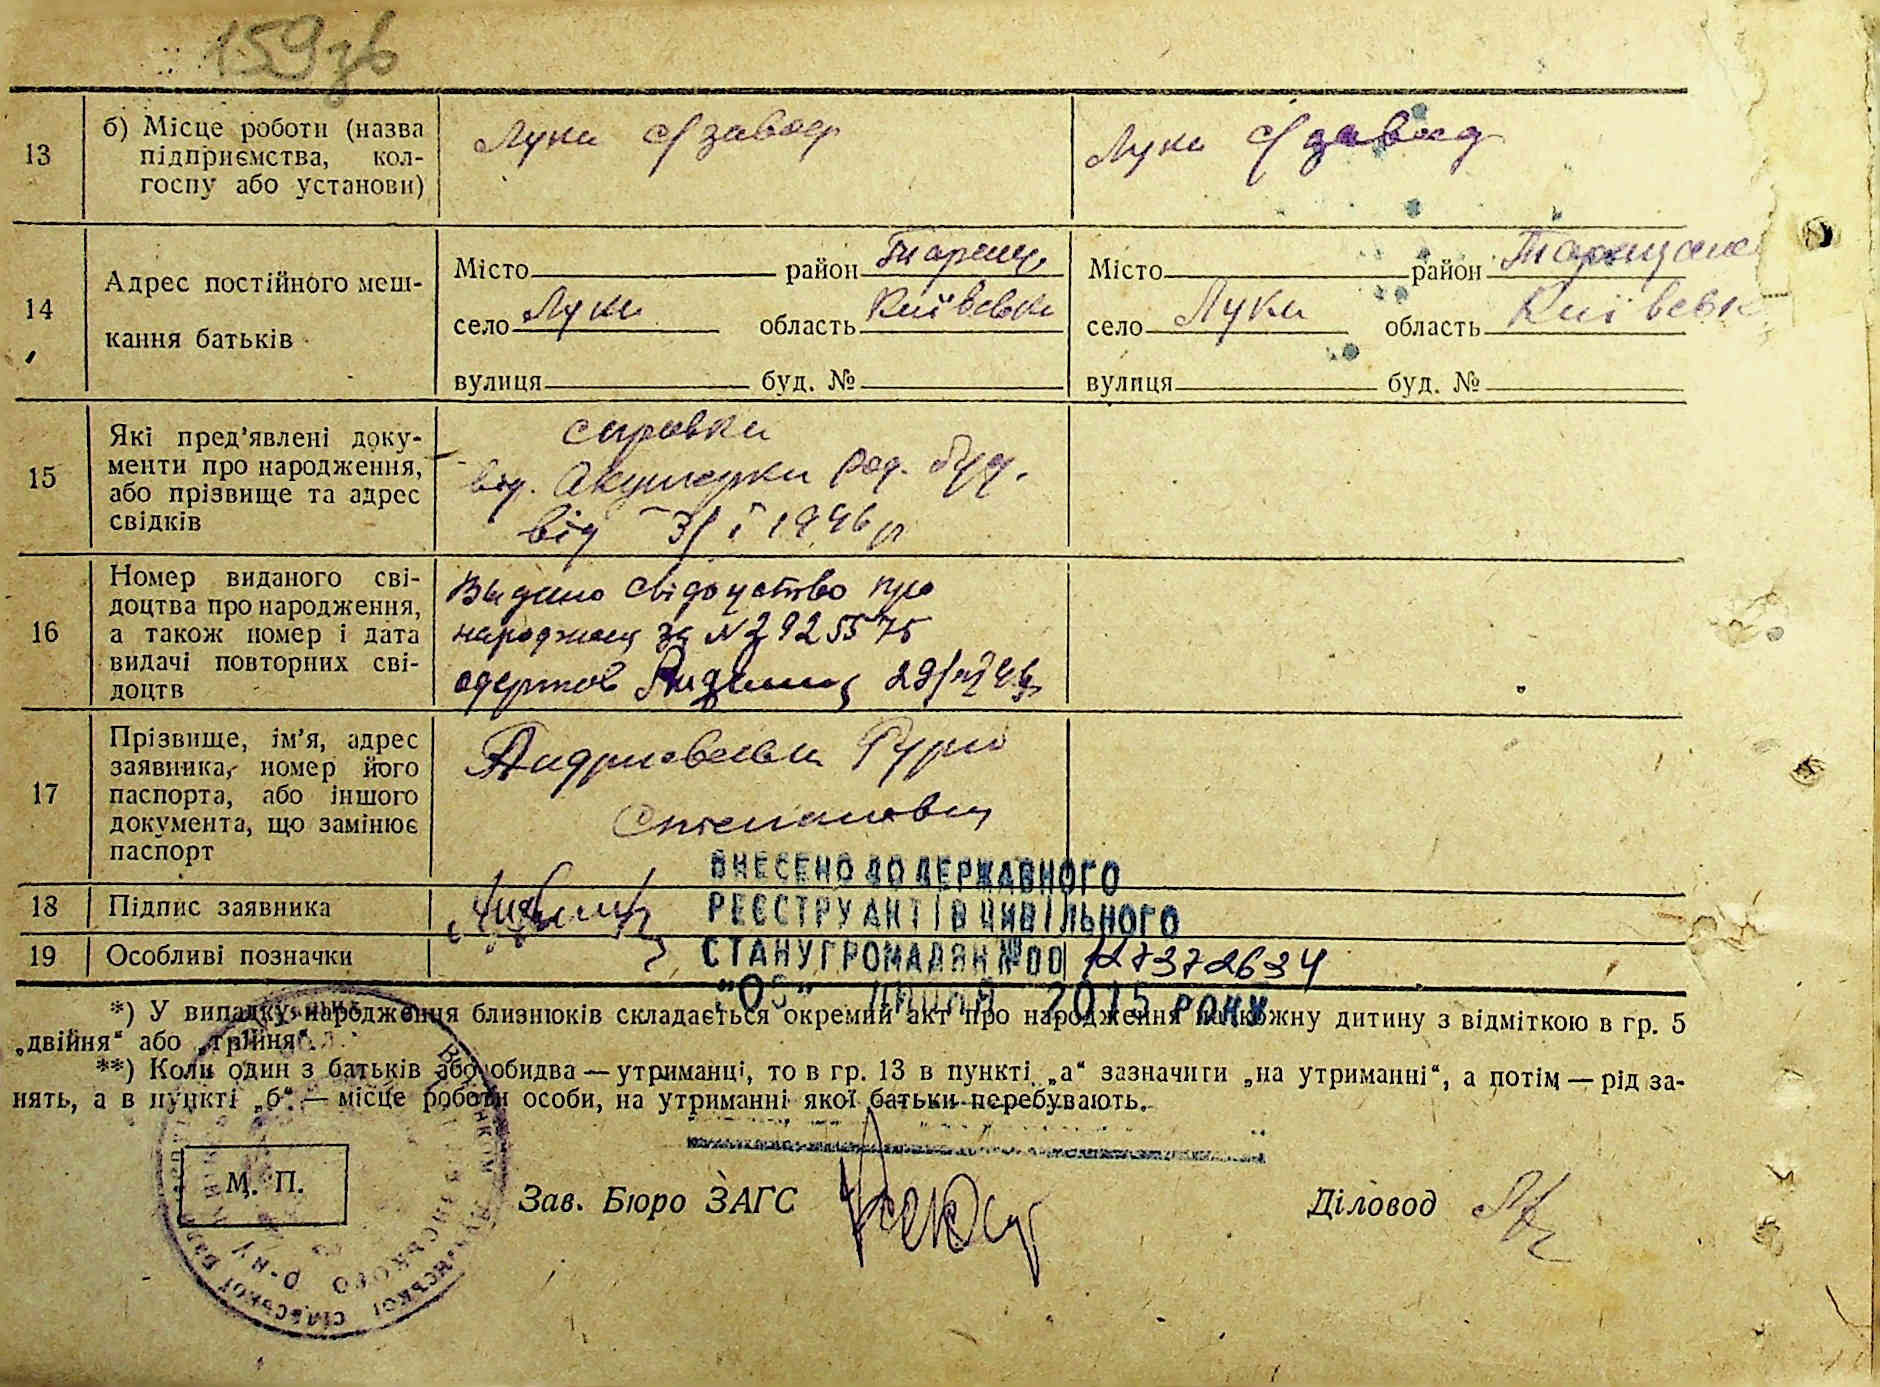 159 зв
13
б) Місце роботи (назва
підприємства, кол-
госпу або установи)
Луки с/завод
Луки с/завод
14
Адрес постійного меш-
кання батьків
Місто район Таращ.
село Луки область Київськ
вулиця буд. №
Місто район Таращанс
село Луки область Київськ
вулиця буд. №
15
Які пред’явлені доку-
менти про народження,
або прізвище та адрес
свідків
справки
від. Акушерки род. буд.
від 3/I 1946 р
16
Номер виданого сві-
доцтва про народження,
а також номер і дата
видачі повторних сві-
доцтв
Выдано свідоцтво про
народжен за №
одержав
17
Прізвище, ім’я, адрес
заявника, номер його
паспорта, або іншого
документа, що замінює
паспорт
Степанович
18
Підпис заявника
19
Особливі позначки
ВНЕСЕНО ДО ДЕРЖАВНОГО
РЕЄСТРУ АКТІВ ЦИВІЛЬНОГО
СТАНУ ГРОМАДЯН №00 127372634
"05" липня 2015 РОКУ
*) У випадку народження близнюків складається окремий акт про народження на кожну дитину з відміткою в гр. 5
„двійня“ або „трійня“.
**) Коли один з батьків або обидва — утриманці, то в гр. 13 в пункті „а“ зазначити „на утриманні“, а потім — рід за-
нять, а в пункті „б“ — місце роботи особи, на утриманні якої батьки перебувають.
М. П.
Зав. Бюро ЗАГС
Діловод